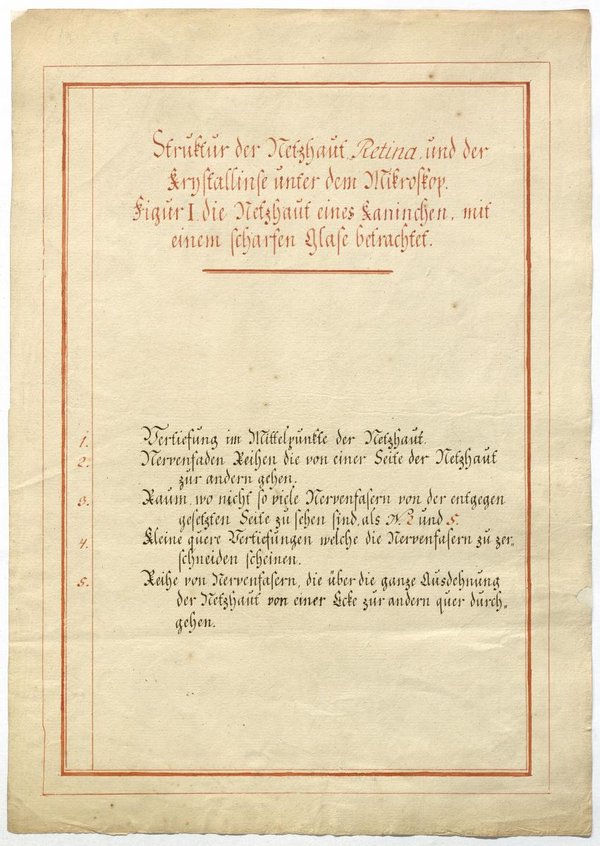 Struktur der Netzhaut, Retina, und der
Krystallinse unter dem Mikroskop.
Figur I. die Netzhaut eines Kaninchen, mit
einem scharfen Glase betrachtet.
1. Vertiefung im Mittelpunkte der Netzhaut.
2. Nervenfaden Reihen die von einer Seite der Netzhaut
zur andern gehen.
3. Raum, wo nicht so viele Nervenfasern von der entgegen
gesetzten Seite zu sehen sind, als N. 2 und 5.
4. Kleine quere Vertiefungen welche die Nervenfasern zu zer-
schneiden scheinen.
5. Reihe von Nervenfasern, die über die ganze Ausdehnung
der Netzhaut von einer Ecke zur andern quer durch-
gehen.